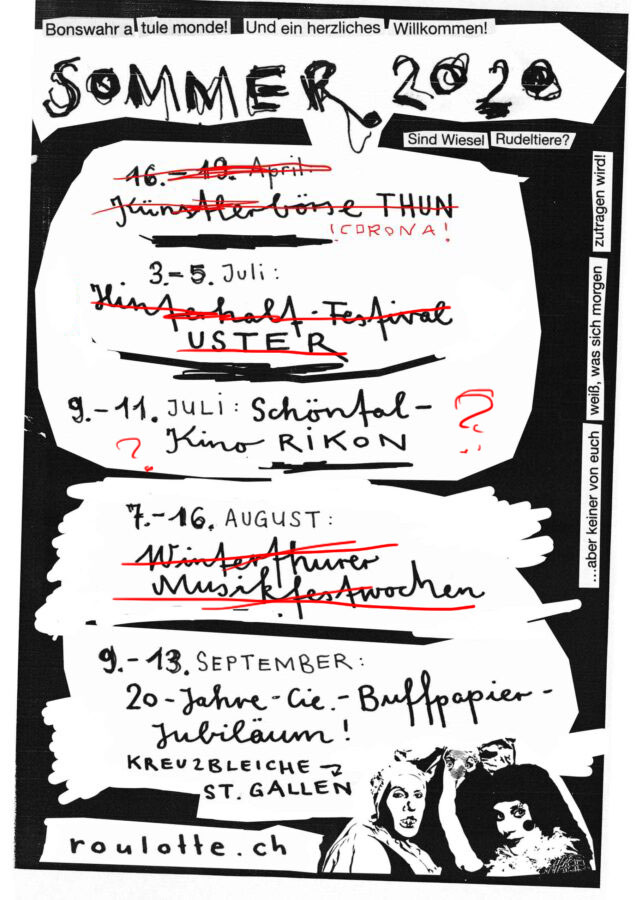 Bonswahr a tule monde! Und ein herzliches Willkommen!
SOMMER 2020
Sind Wiesel Rudeltiere?
16.-19. April:
Künstlerbörse THUN
!CORONA!
3.-5. Juli:
Hinterhalt-Festival
USTER
9.-11. JULI: Schöntal-
Kino RIKON
?
?
7.-16. AUGUST:
Winterthurer
Musikfestwochen
9.-13. SEPTEMBER:
20-Jahre-Cie.-Buffpapier-
Jubiläum!
KREUZBLEICHE →
ST. GALLEN
roulotte.ch
...aber keiner von euch weiß, was sich morgen zutragen wird!